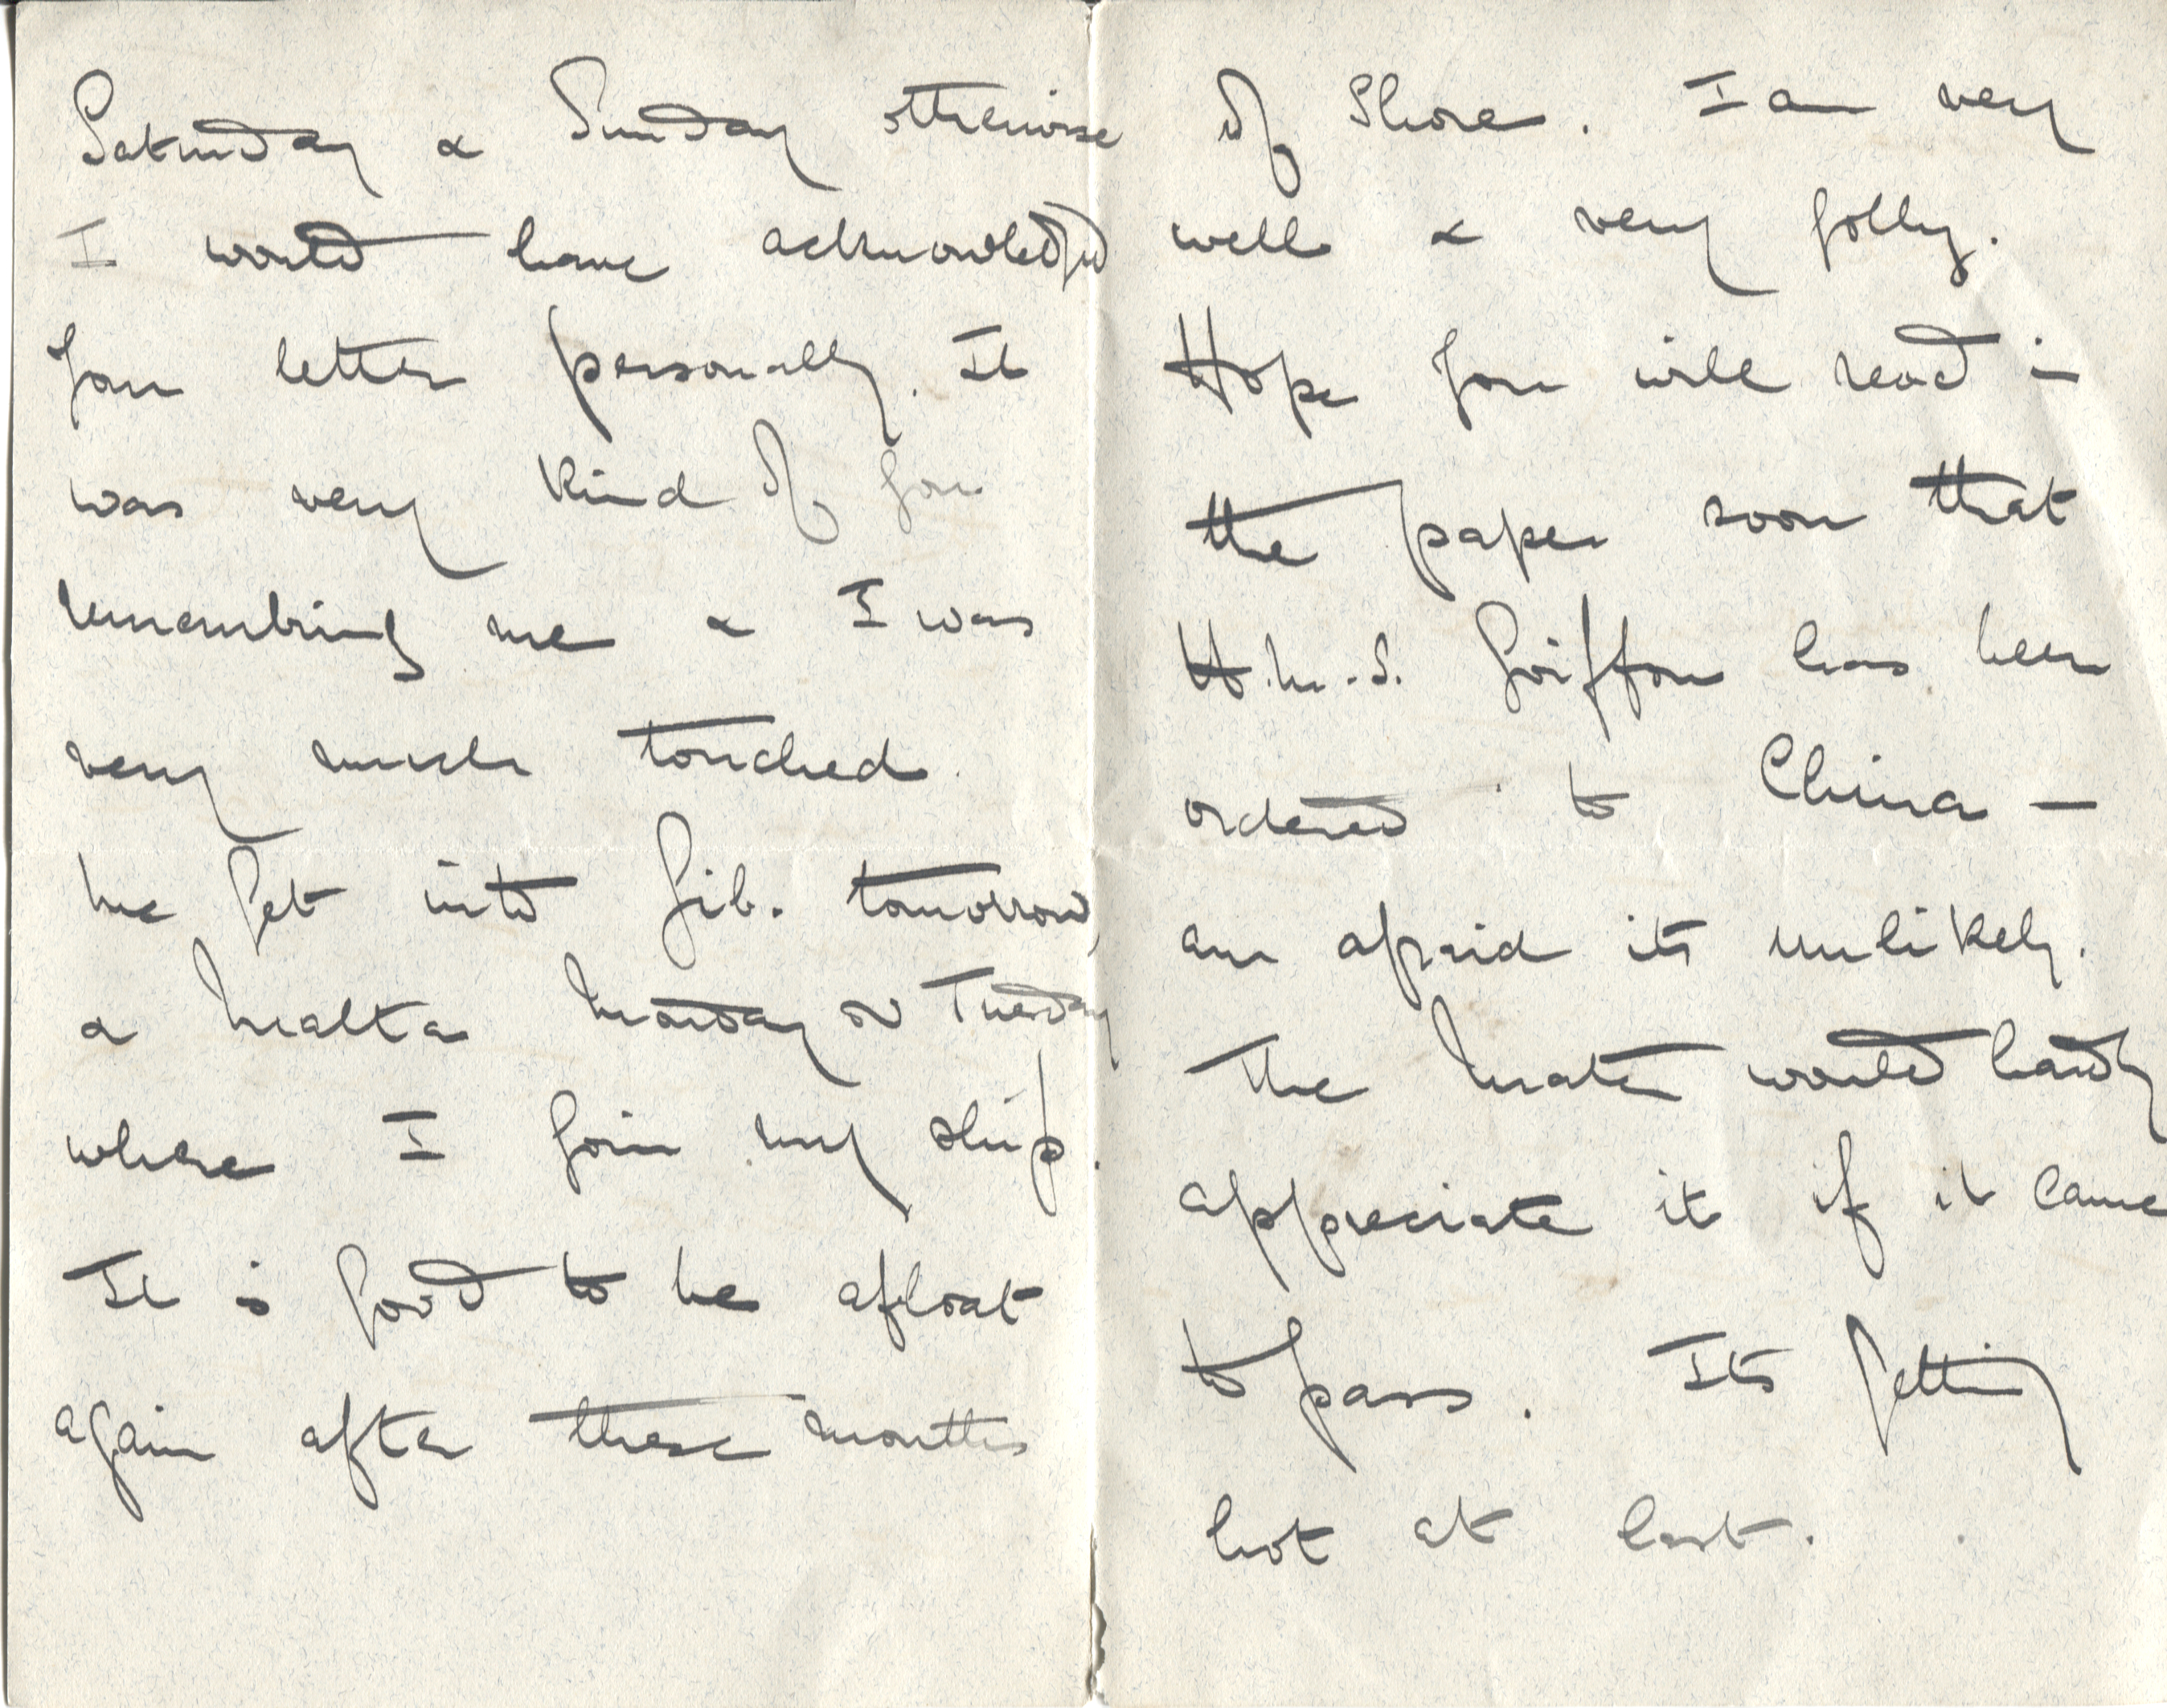 Saturday & Sunday otherwise
I would have acknowledged
your letter personally. It
was very kind of you
remembring me & I was
very much touched.
We get into Gib. tomorrow,
& Malta Monday or Tuesday
where I join my ship.
It is good to be afloat
again after these months
of Shore. I am very
well & very jolly.
Hope you will read in
the paper soon that
H.M.S. Griffon has been
ordered to China –
am afraid its unlikely.
The Mater would hardly
appreciate it if it came
to pass. Its getting
hot at last.